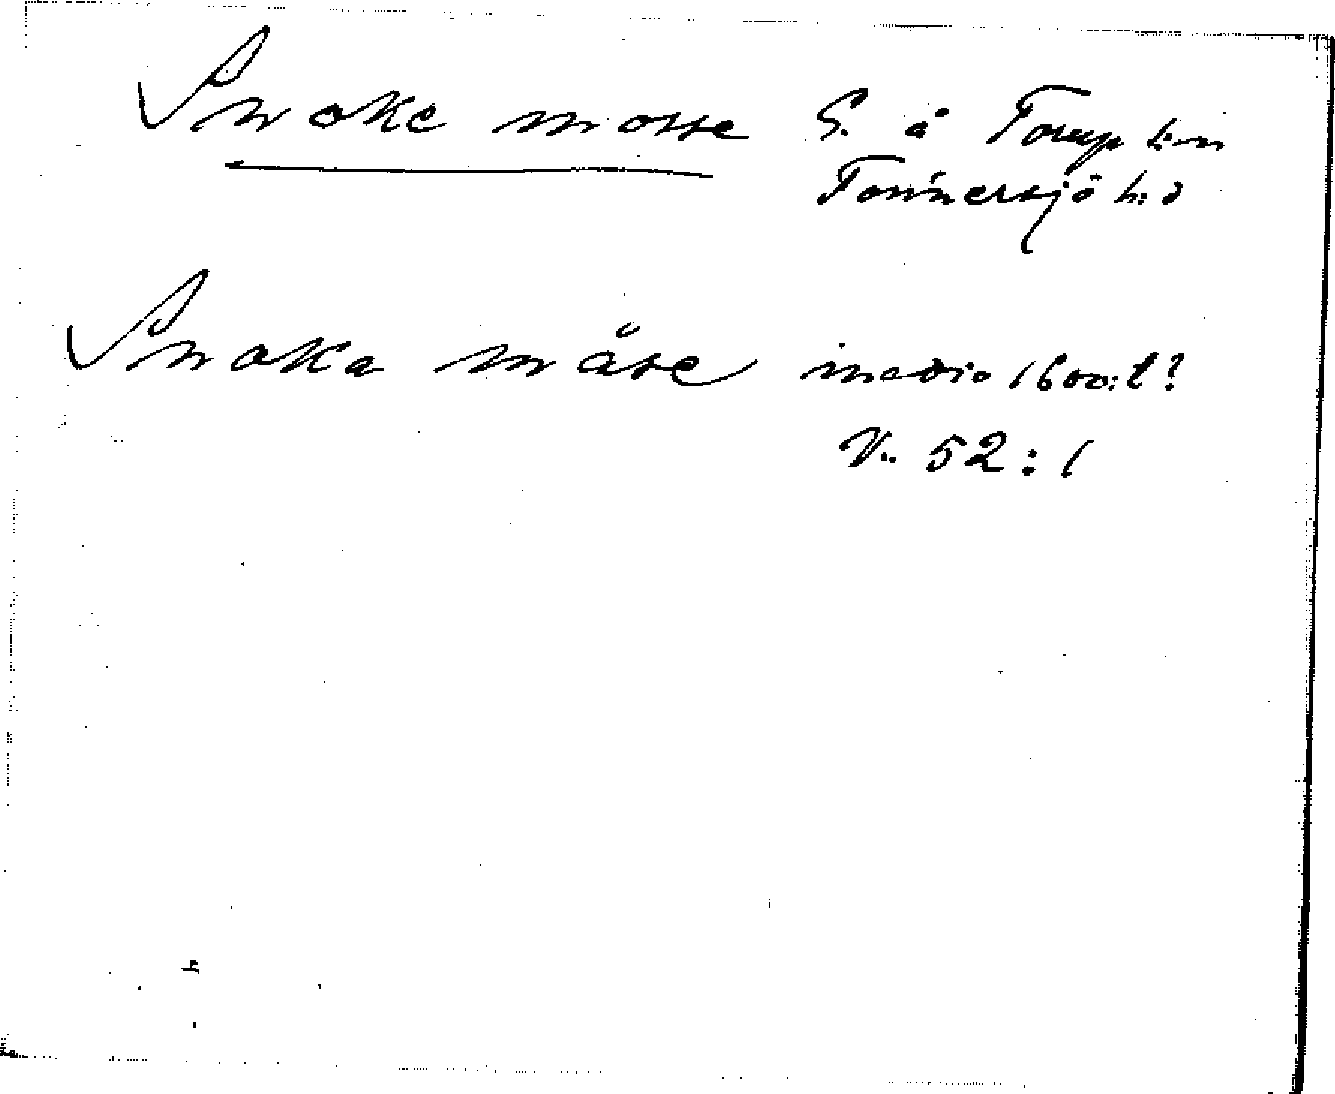 Snoke mosse G. å Torup s:n
Tönnersjö h:d
Snoka måse medio 1600:t?
V. 52:1